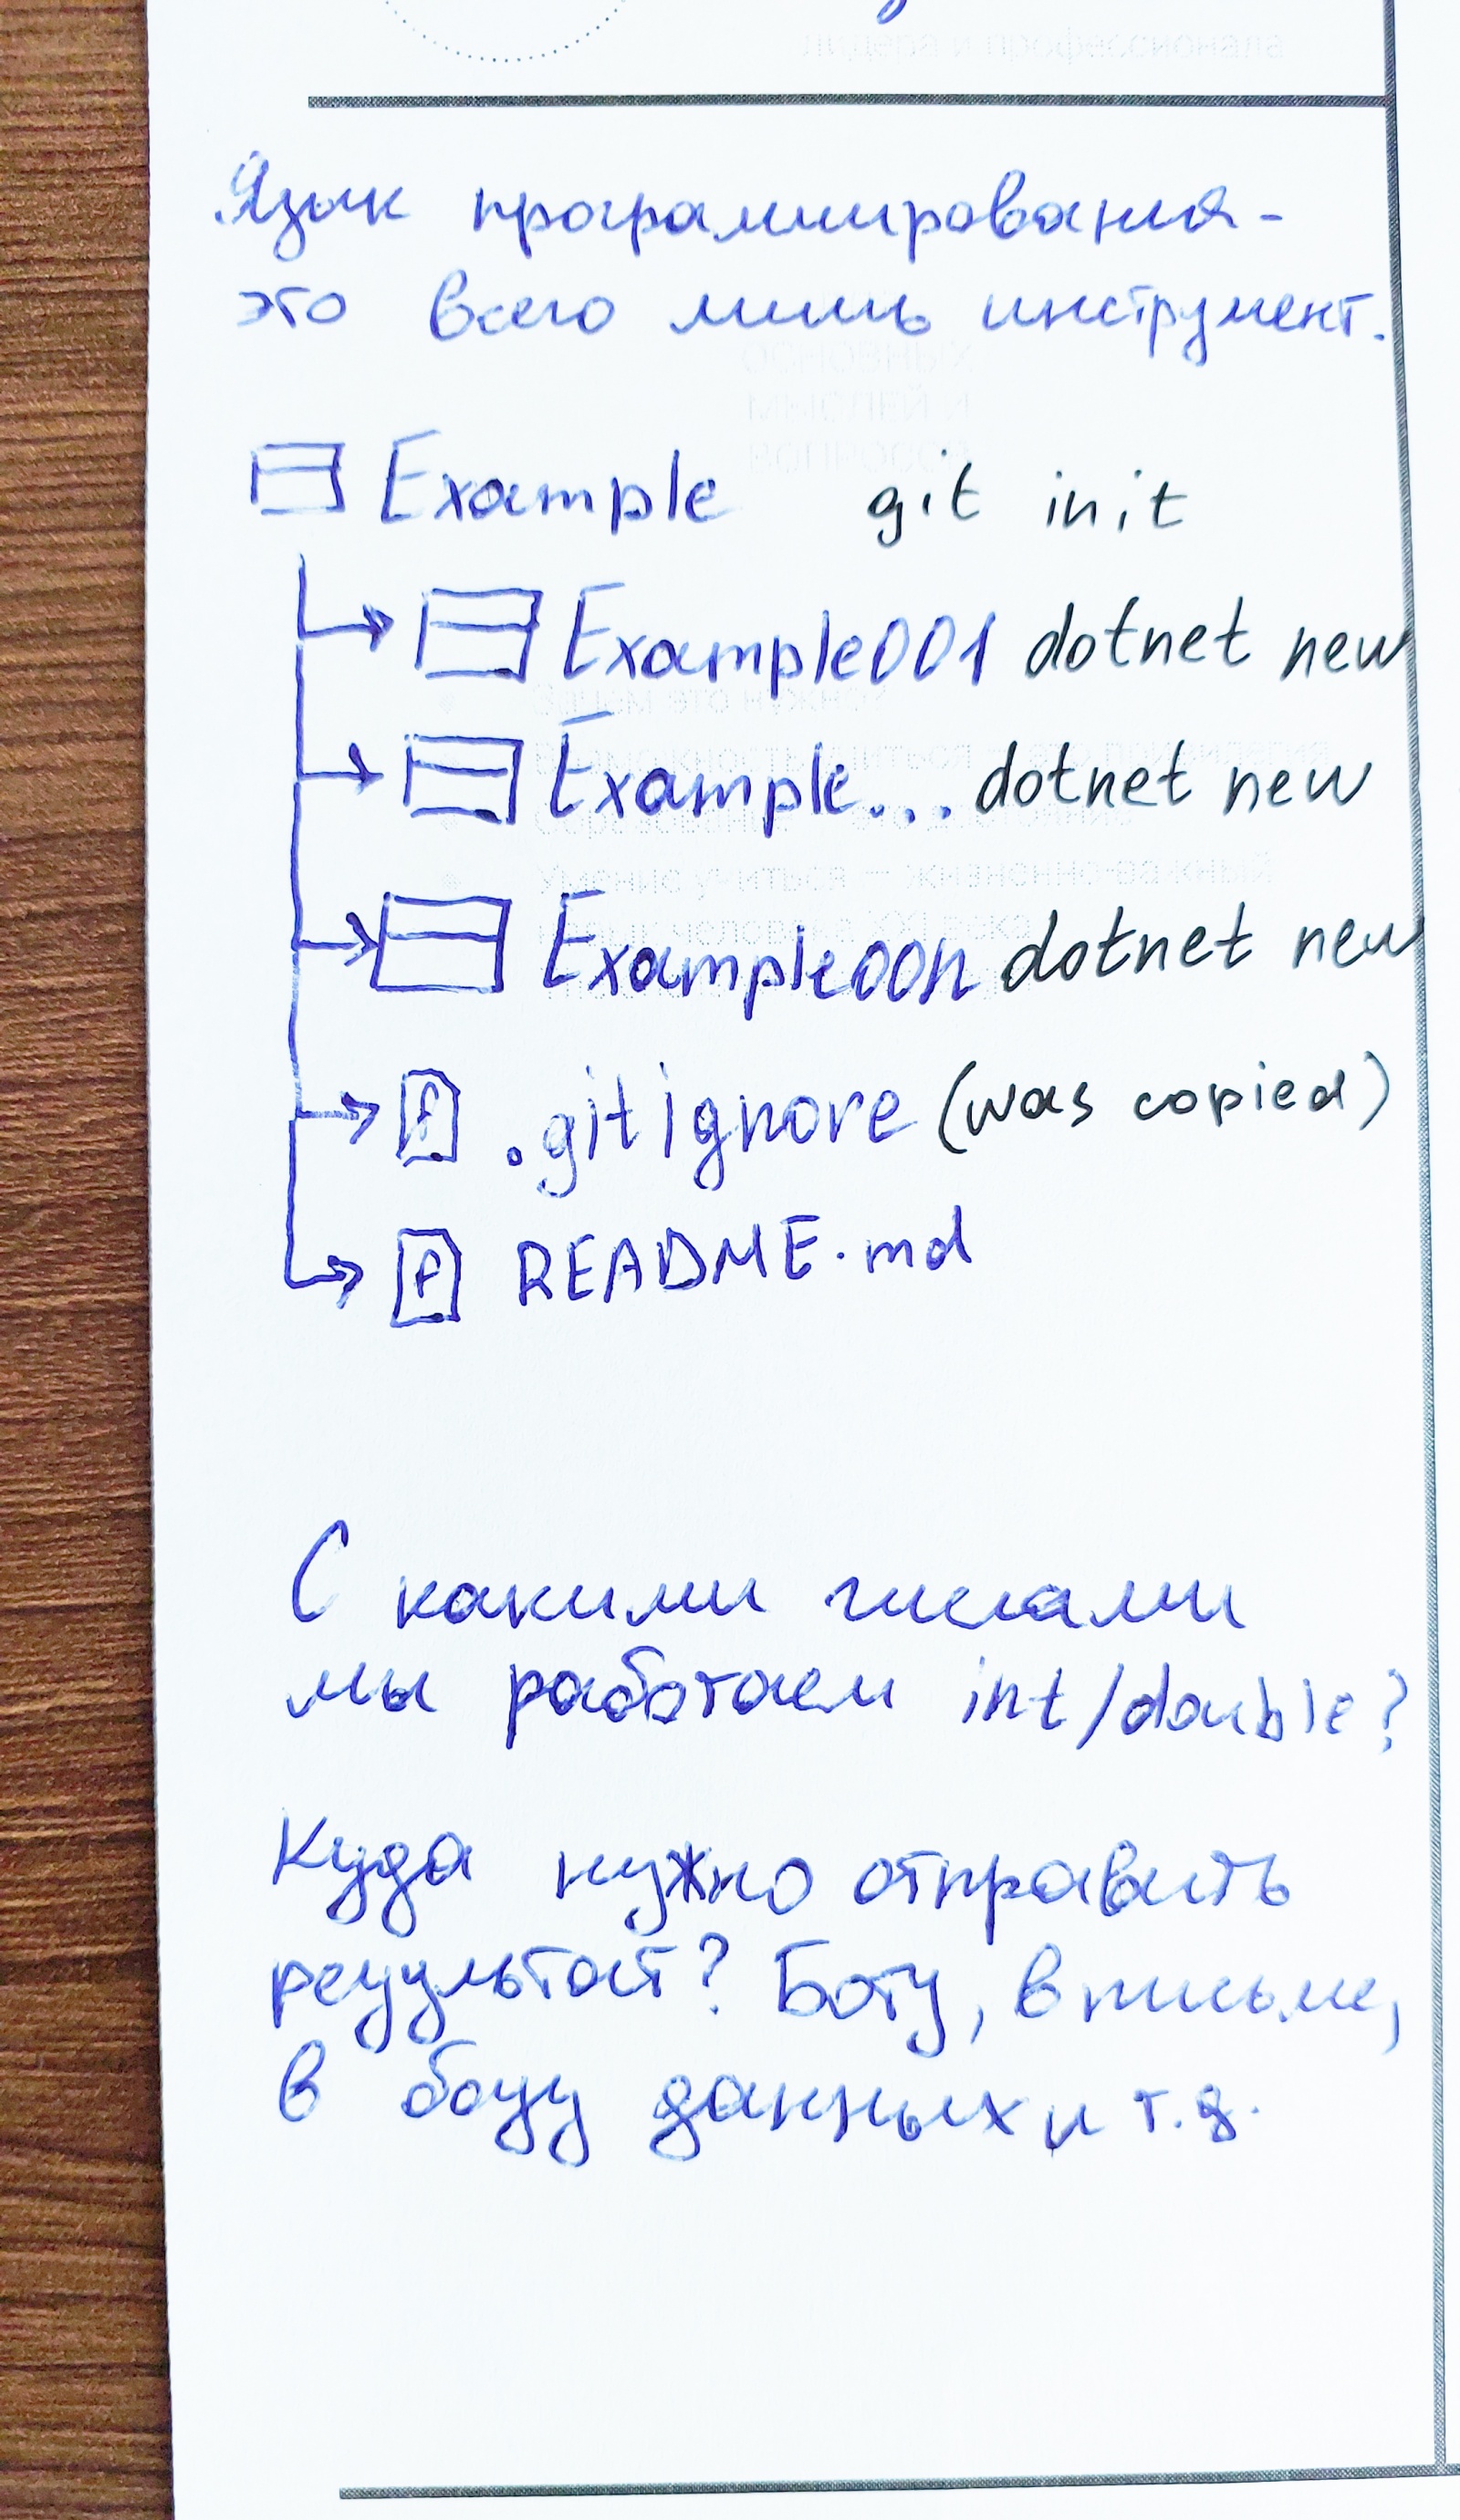 Язык программирования -
это всего лишь инструмент.
Example git init
Example001 dotnet new
Example... dotnet new
Example00n dotnet new
F .gitignore (was copied)
F README.md
С какими числами
мы работаем int/double?
Куда нужно отправить
результат? Боту, в письме,
в базу данных и т.д.